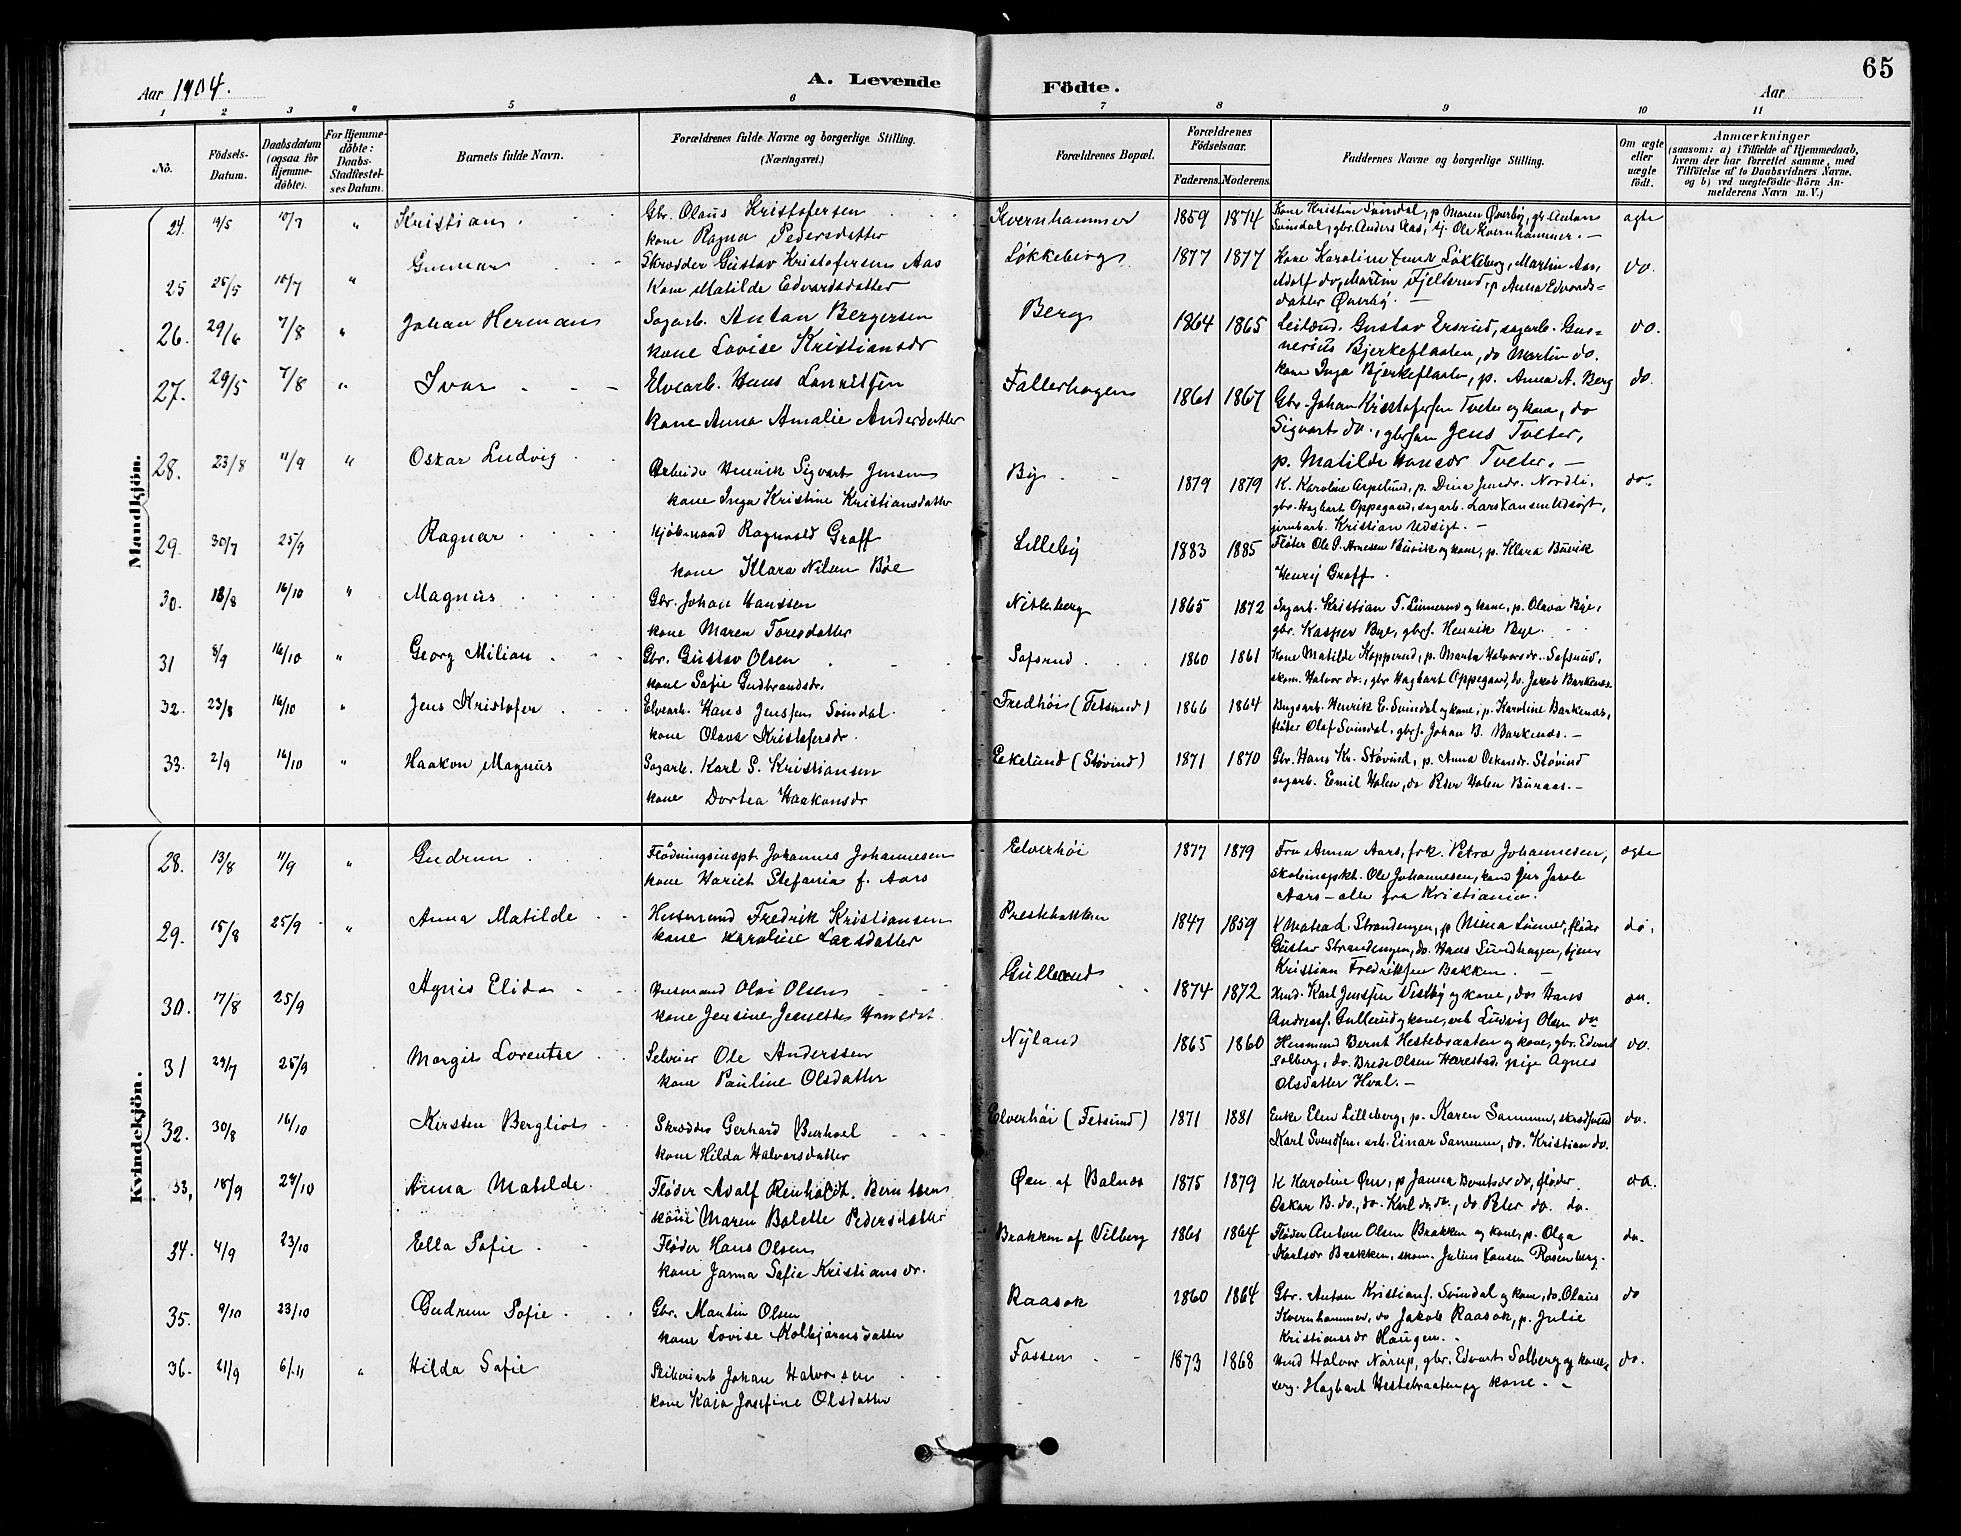 Aar 1904.
A. Levende
Födte.
65
Aar
1 2 3 4 5 6 7 8 9 10 11
No.
Födsels-Datum.
Daabsdatum (ogsaa for Hjemme-döbte).
For Hjemme-döbte: Daabs-Stadfæstel-ses Datum.
Barnets fulde Navn.
Forældrenes fulde Navne og borgerlige Stilling. (Næringsvei.)
Forældrenes Bopæl.
Forældrenes Födselsaar.
Faderens. Moderens.
Faddernes Navne og borgerlige Stilling.
Om ægte eller uægte födt.
Anmærkninger
(saasom: a) i Tilfælde af Hjemmedaab, hvem der har forrettet samme, med Tilföielse af to Daabsvidners Navne, og b) ved uægtefödte Börn An-melderens Navn m. V.)
Mandkjön.
24. 19/5 10/7 " Kristian Gbr. Olaus Kristofersen Kvernhammer 1859 1874 Kone Kristine Svindal, p. Maren Øverby, gbr. Anton ægte
kone Ragna Pedersdatter Svindal, gbr. Anders Aas, tj. Ole Kvernhammer. —
25 25/5 10/7 " Gunnar Skrædder Gustav Kristofersen Aas Løkkeberg 1877 1877 Kone Karoline Løkkeberg, Martin Aas, do.
Kone Matilde Edvardsdatter Adolf do, Martin Fjeldsrud, p. Anna Edvards-
datter Øverby. —
26. 29/6 7/8 " Johan Herman Sagarb. Anton Bergersen Berg 1864 1865 Leilænd. Gustav Ersrud, sagarb. Gun- do.
kone Lovise Kristiansdr nerius Bjerkeflaaten, do Martin do.
kone Inga Bjerkeflaaten, p. Anna A. Berg
27. 29/5 7/8 " Ivar Elvearb. Hans Lauritsen Fallerhagen 1861 1867 Gbr. Johan Kristofersen Tveter og kone, do do.
kone Anna Amalie Andersdatter Sigvart do., gbrsøn Jens Tveter,
p. Matilde Hansdr Tveter. —
28. 23/8 11/9 " Oskar Ludvig Arbeider Henrik Sigvart Jensen By 1879 1879 K. Karoline Aspelund, p. Dina Jensdr. Nordli, do.
kone Inga Kristine Kristiansdatter gbr. Hagbart Oppegaard, sagarb. Lars Hansen Udsigt,
jernbarb. Kristian Udsigt. —
29. 30/7 25/9 Ragnar Kjøbmand Ragnvald Graff Lilleby 1883 1885 Fløter Ole P. Arnesen Buvik og kone, p. Klara Buvik
kone Klara Nilsen Bøe Henry Graff.
30. 18/8 16/10 " Magnus Gbr. Johan Hanssen Nitteberg 1865 1872 Sagarb. Kristian T. Linnerud og kone, p. Olava Bye,
kone Maren Toresdatter gbr. Kasper Bye, gbrs. Henrik Bye.
31 8/9 16/10 " Georg Milian Gbr. Gustav Olsen Sofsrud 1860 1861 Kone Matilde Kopperud, p. Marta Halvorsdr. Sofsrud,
kone Sofie Gudbrandsdr. skom. Halvor do., gbr Hagbart Oppegaard, do. Jakob Barkenæs.
32. 23/8 16/10 " Jens Kristofer Elvearb. Hans Jenssen Svindal Fredhøi (Fetsund) 1866 1864 Bugsarb. Henrik E. Svindal og kone, p. Karoline Barkenæs,
kone Olava Kristofersdr. fløter Olaf Svindal, gbrs. Johan B. Barkenæs. —
33. 2/9 16/10 " Haakon Magnus Sagarb. Karl S. Kristiansen Ekelund (Støvind) 1871 1870 Gbr. Hans Kr. Støvind, p. Anna Oskarsdr. Støvind
kone Dortea Haakonsdr sagarb. Emil Holen, do Peer Holen Buraas. —
Kvindekjön.
28. 13/8 11/9 " Gudrun Flødningsinspt. Johannes Johannesen Elverhöi 1877 1879 Fru Anna Aars, frk. Petra Johannesen, ægte
kone Hariet Stefania f. Aars skolinspkt. Ole Johannesen, kand jur Jacob
Aars — alle fra Kristiania.
29. 15/8 25/9 " Anna Matilde Husmand Fredrik Kristiansen Prestebakken 1847 1859 K Matea L. Strandengen, p Mina Linner, fløder do.
kone Karoline Larsdatter Gustav Strandengen, do. Hans Sundhagen, tjener
Kristian Fredriksen Bakken. —
30. 17/8 25/9 Agnes Elida Husmand Olai Olsen Gullerud 1874 1872 Hmd. Karl Jenssen Vestby og kone, do Hans do.
kone Jensine Jenette Hansdat. Andreass. Gullerud og kone, arb. Ludvig Olsen do
31 29/7 25/9 Margit Lorentse Selveier Ole Anderssen Nyland 1865 1860 Husmand Bernt Hestebraaten og kone, gbr. Edvart do.
kone Pauline Olsdatter Solberg, do. Brede Olsen Harestad, pige Agnes
Olsdatter Hval. —
32. 30/8 16/10 Kirsten Bergliot Skrædder Gerhard Burhoel Elverhöi (Fetsund) 1871 1881 Enke Elen Lilleberg, p. Karen Sammen, skræddersvend do.
kone Hilda Halvorsdatter Karl Svendsen, arb. Einar Sammen, do. Kristian do.
33, 18/9 29/10 Anna Matilde. Fløder Adolf Reinholdt Berntsen Øen af Balnes 1875 1879 K Karoline Øen, p Janna Berntsdr do, fløder do.
kone Maren Bolette Pedersdatter Oskar B. do., do. Karl do, do., do Peter do. do.
34. 4/9 23/10 Ella Sofie Fløder Hans Olsen Brakken af Vilberg 1861 1864 Fløder Anton Olsen Brakken og kone, p. Olga do.
kone Janna Sofie Kristiansdr. Karlsdr Brakken, skom. Julius Hansen Rosenberg.
35. 9/10 23/10 Gudrun Sofie Gbr. Martin Olsen Raasok 1860 1864 Gbr. Anton Kristians. Svindal og kone, do. Olaus do
kone Lovise Kolbjørnsdatter Kvernhammer, do Jakob Raasok, p. Julie
Kristiansdr Haugen.
36. 21/9 6/11 " Hilda Sofie Skiferarb Johan Halvorsen Fossen 1873 1868 Hmd Halvor Norup, gbr. Edvart Solberg og kone, do.
kone Kaja Josefine Olsdatter Hagbart Hestebraaten og kone. —